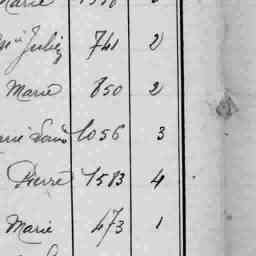 Marie
Julie 741 2
Marie 850 2
Marie Louis 1056 3
Pierre 1583 4
Marie 473 1